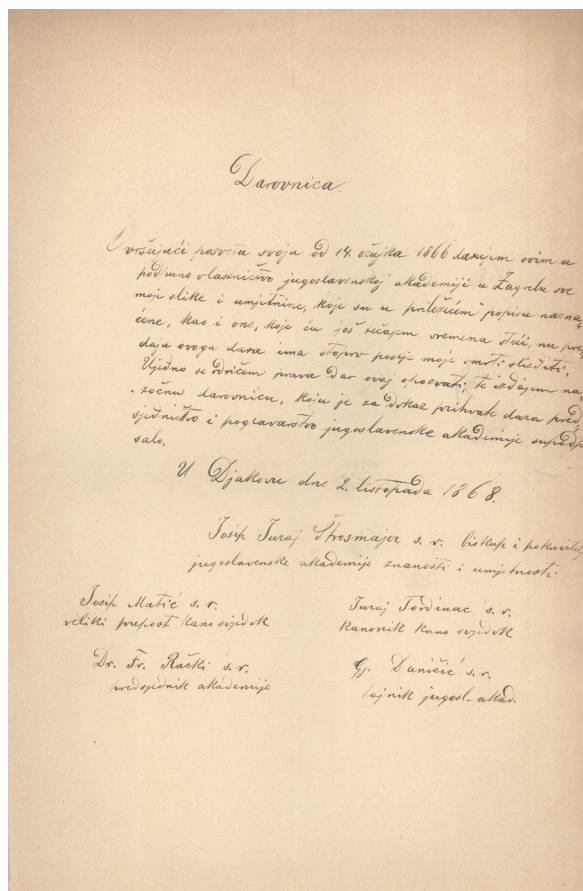 Darovnica.
Ovršujući posvetu svoju od 14. ožujka 1866 darujem ovim u
podpuno vlastničtvo jugoslavenskoj akademiji u Zagrebu sve
moje slike i umjetnine, koje su u priležećem popisu nazna-
čene, kao i one, koje ću još tečajem vremena steći, nu pre-
daja ovoga dara ima stoprv poslje moje smrti slediti.
Ujedno se odričem prava dar ovaj opozvati, te izdajem na-
zočnu darovnicu, koju je za dokaz prihvata dara pred-
sjedničtvo i poglavarstvo jugoslavenske akademije supodpi-
salo.
U Djakovu dne 2. listopada 1868.
Josip Juraj Štrosmajer s. r. biskup i pokrovitelj
jugoslavenske akademije znanosti i umjetnosti.
Josip Matić s. r.
veliki prepošt kano svjedok
Juraj Tordinac s. r.
kanonik kano svjedok
Dr. Fr. Rački s. r.
predsjednik akademije
Gj. Daničić s. r.
tajnik jugosl. akad.